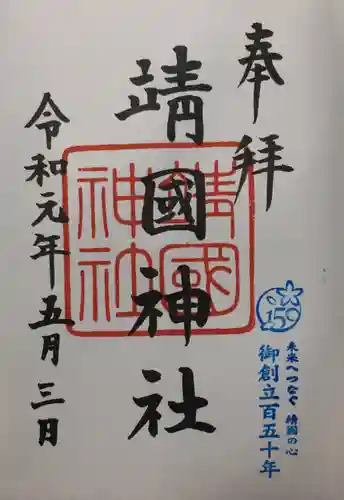 奉拝
未来へつなぐ 靖國の心
御創立百五十年
150
靖國神社
靖國神社
令和元年五月三日